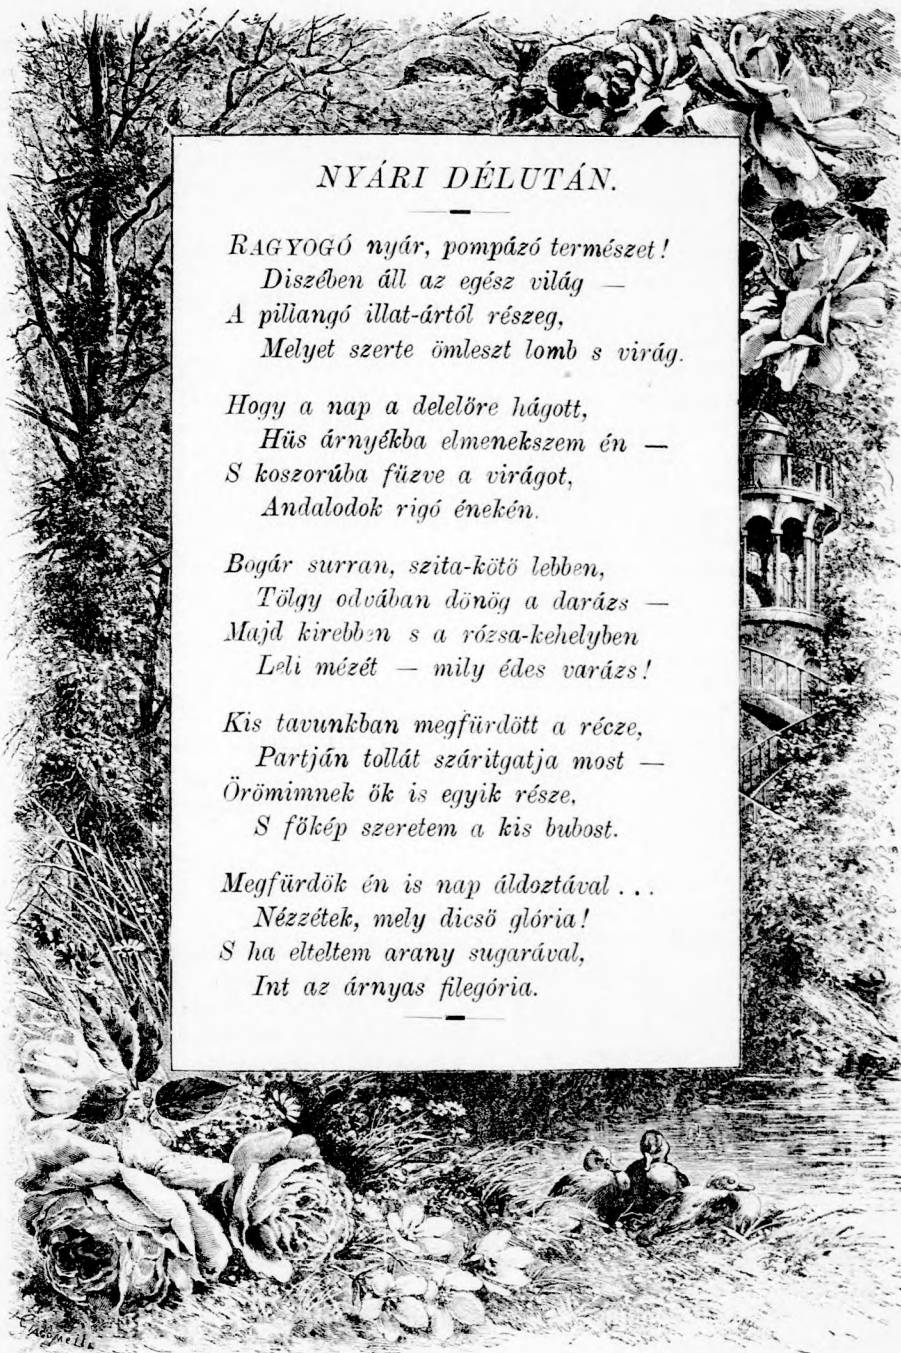 NYÁRI DÉLUTÁN.
RAGYOGÓ nyár, pompázó természet!
Diszében áll az egész világ —
A pillangó illat-ártól részeg,
Melyet szerte ömleszt lomb s virág.
Hogy a nap a delelőre hágott,
Hüs árnyékba elmenekszem én —
S koszorúba füzve a virágot,
Andalodok rigó énekén.
Bogár surran, szita-kötö lebben,
Tölgy odvában dönög a darázs —
Majd kirebben s a rózsa-kehelyben
Leli mézét — mily édes varázs!
Kis tavunkban megfürdött a récze,
Partján tollát száritgatja most —
Örömimnek ök is egyik része,
S főkép szeretem a kis bubost.
Megfürdök én is nap áldoztával . . .
Nézzétek, mely dicsö glória!
S ha elteltem arany sugarával,
Int az árnyas filegória.
Giacomelli